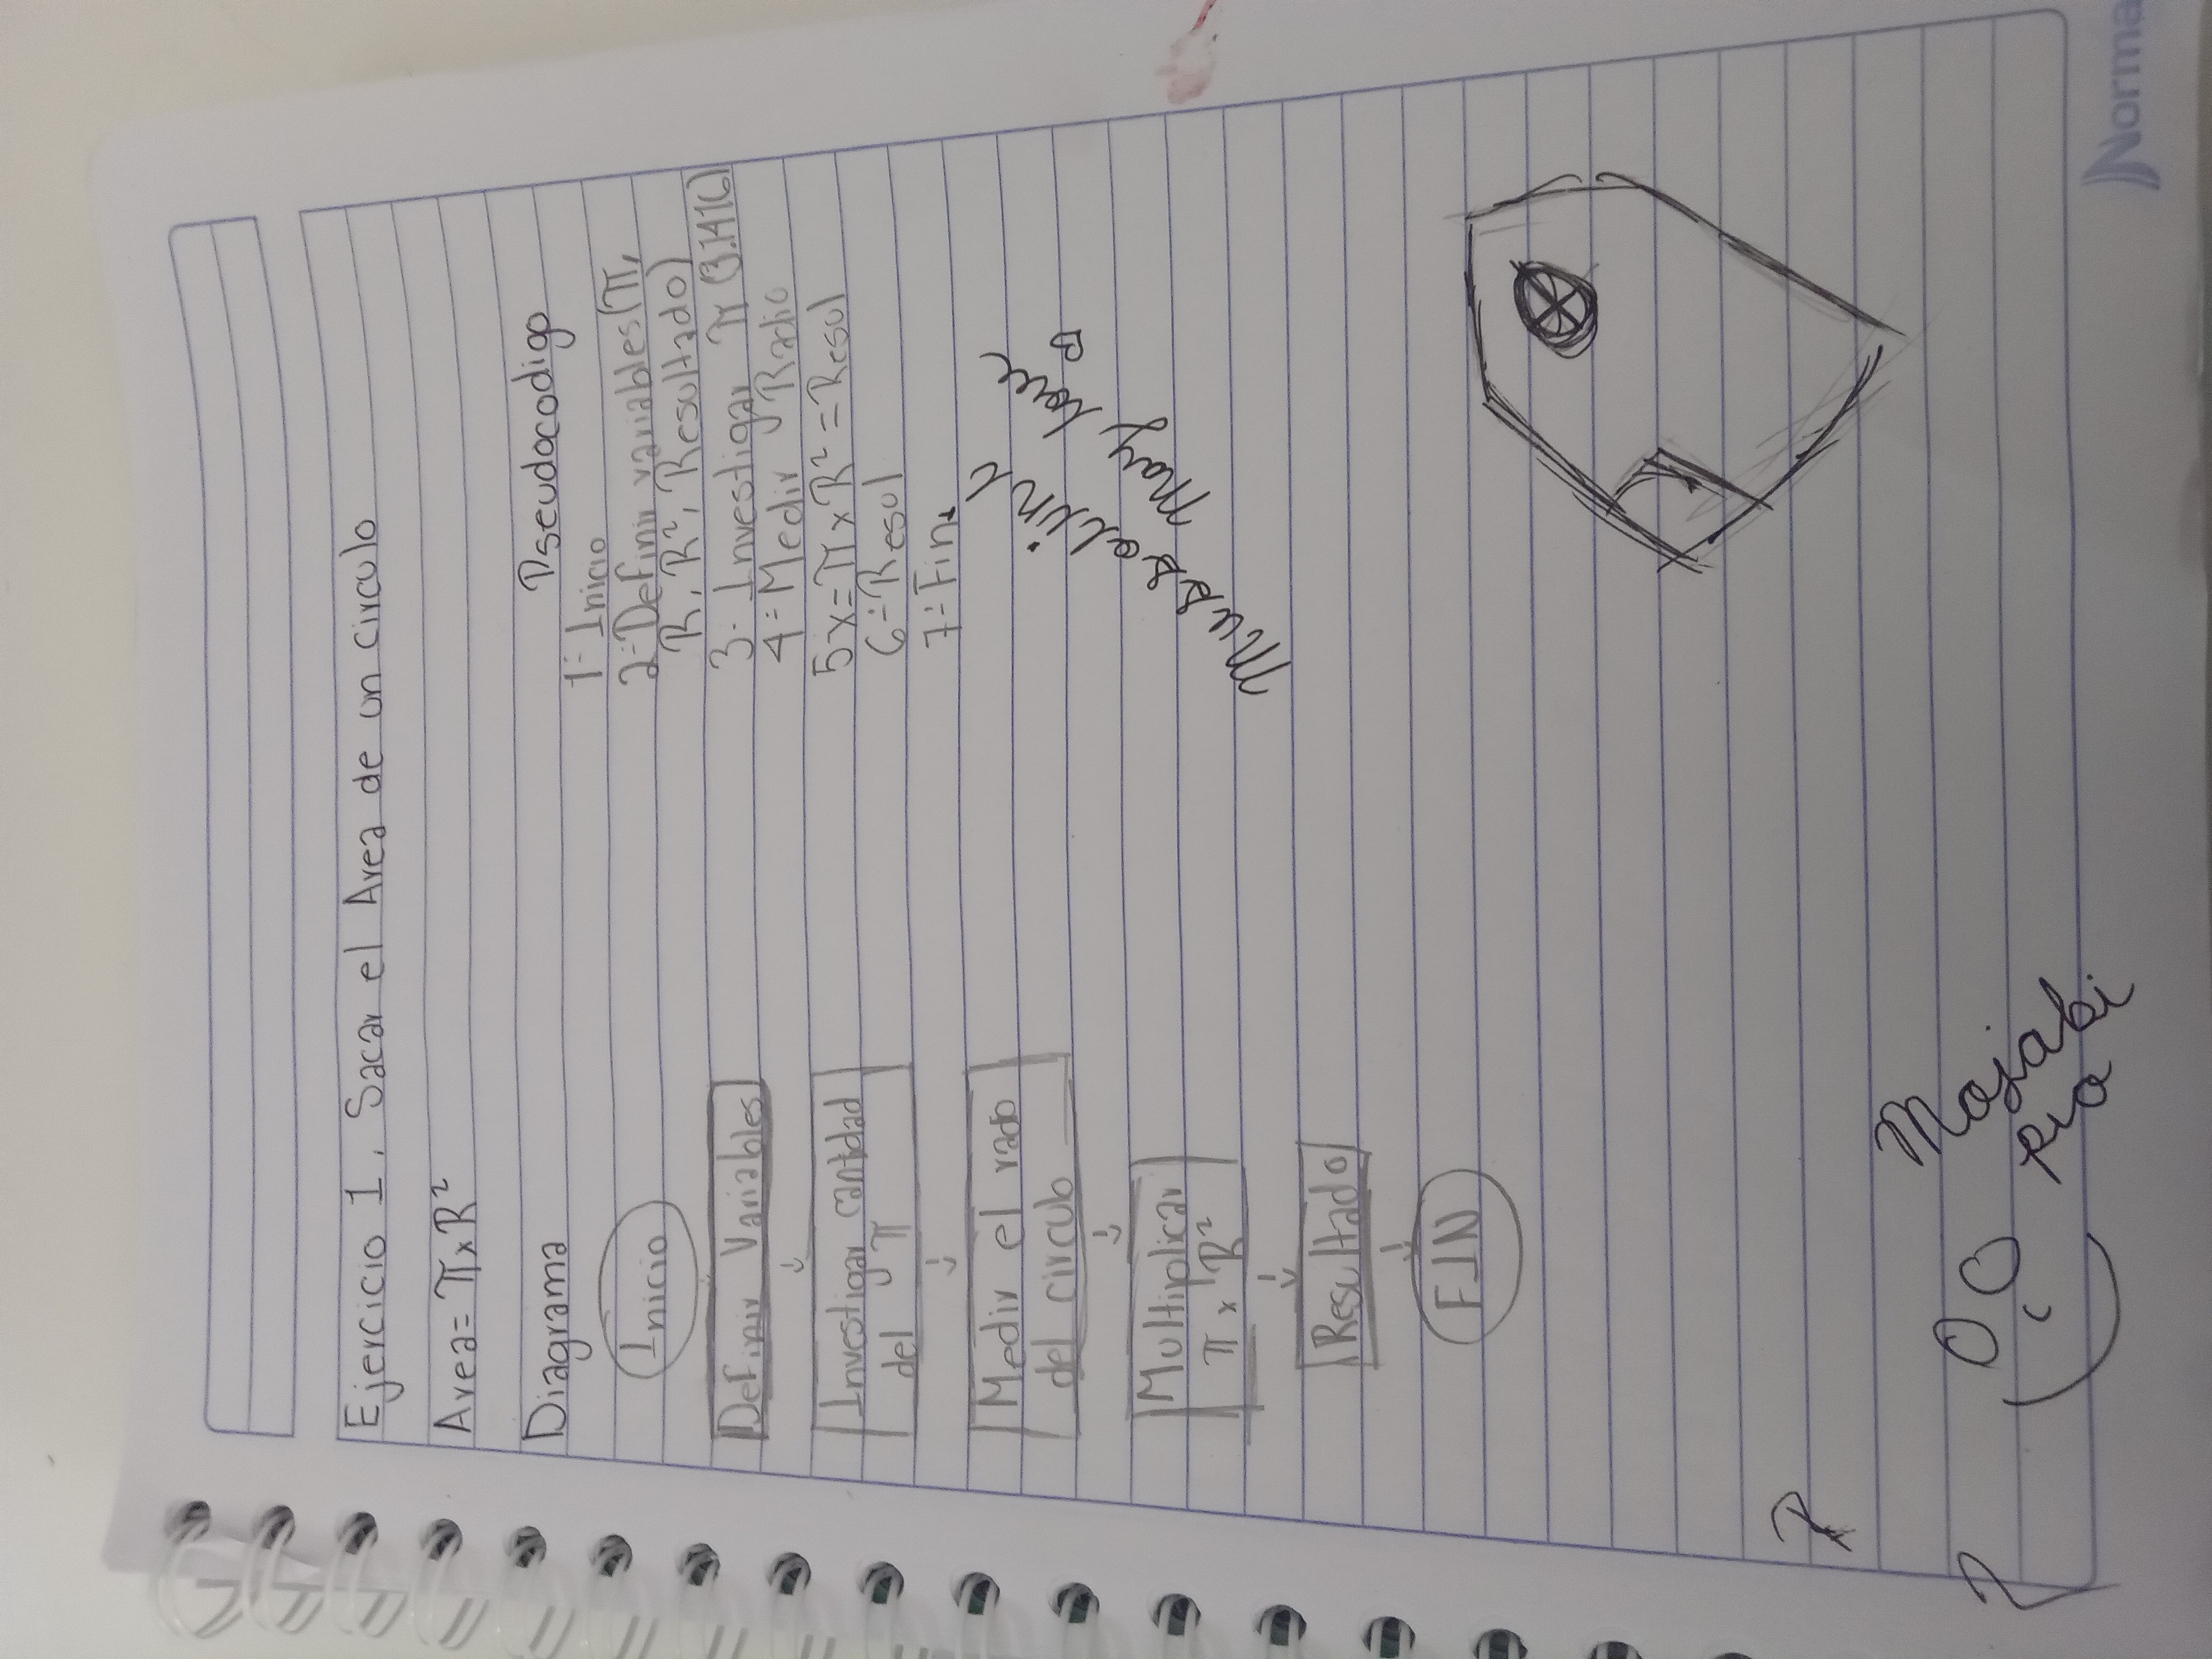 Ejercicio 1. Sacar el Area de un circulo
Area= π x R²
Diagrama
Pseudocodigo
Inicio
Definir Variables
Investigar cantidad
del π
Medir el radio
del circulo
Multiplicar
π x R²
Resultado
FIN
1- Inicio
2- Definir variables (π,
R, R², Resultado)
3- Investigar π (3.1416)
4- Medir Radio
5 x= π x R² = Resul
6- Resul
7- Fin.
Mussolini
May Love
Norma